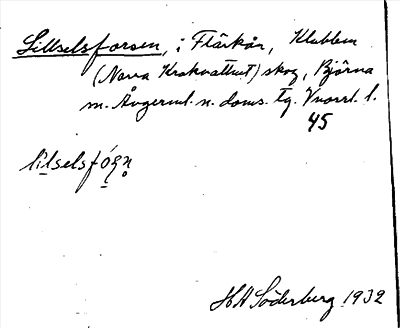 Lillselsforsen, i Flärkån, Klubben
(Norra Krokvattnet) skog, Björna
m. Ångerml. n. doms. tg. Vnorrl. l.
45
lilselsfógn̥
HA Söderberg 1932